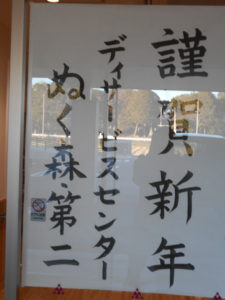 謹賀新年
デイサービスセンター
ぬく森・第二